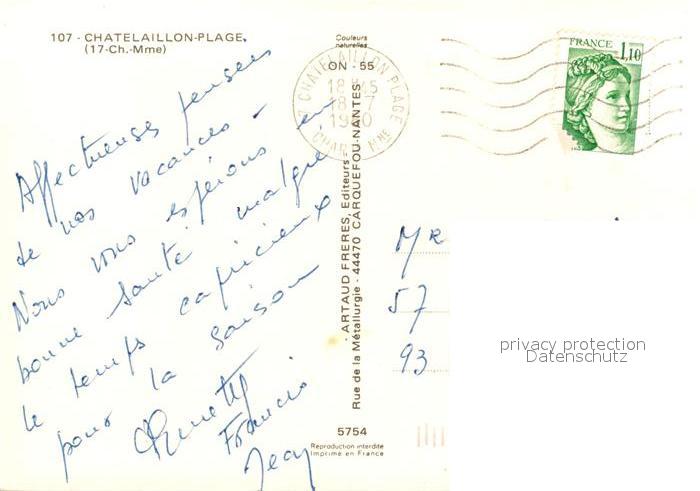 107 - CHATELAILLON-PLAGE
(17-Ch.-Mme)
Affectueuses pensées
de nos vacances -
Nous vous espérons en
bonne santé malgré
le temps capricieux
pour la saison
Francis
Jean
Couleurs
naturelles
ON - 55
17 CHATELAILLON PLAGE
18H45
18-7
1980
CHAR. MME
ARTAUD FRERES, Editeurs
Rue de la Métallurgie - 44470 CARQUEFOU-NANTES
5754
Reproduction interdite
Imprimé en France
FRANCE 1,10
MR
57
93
privacy protection
Datenschutz